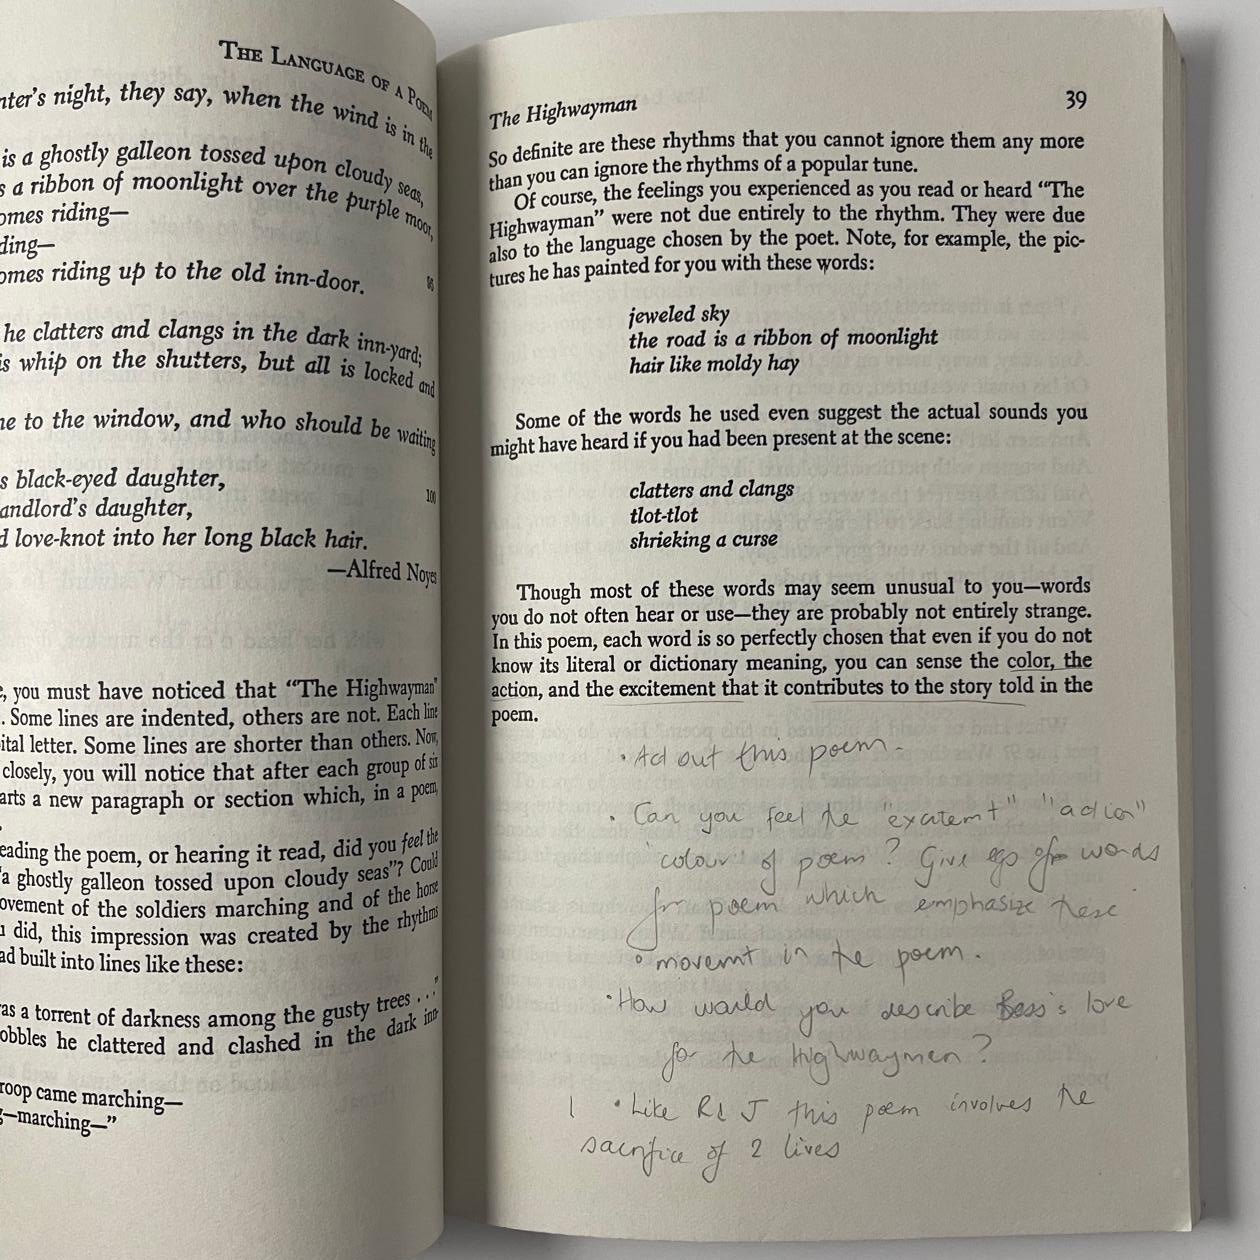 THE LANGUAGE OF A POEM
nter's night, they say, when the wind is in the
is a ghostly galleon tossed upon cloudy seas,
s a ribbon of moonlight over the purple moor,
omes riding—
ding—
omes riding up to the old inn-door.
he clatters and clangs in the dark inn-yard;
is whip on the shutters, but all is locked and
ne to the window, and who should be waiting
s black-eyed daughter,
100
andlord's daughter,
d love-knot into her long black hair.
—Alfred Noyes
e, you must have noticed that "The Highwayman"
. Some lines are indented, others are not. Each line
ital letter. Some lines are shorter than others. Now,
closely, you will notice that after each group of six
arts a new paragraph or section which, in a poem,
eading the poem, or hearing it read, did you feel the
"a ghostly galleon tossed upon cloudy seas"? Could
ovement of the soldiers marching and of the horse
u did, this impression was created by the rhythms
ad built into lines like these:
as a torrent of darkness among the gusty trees . . ."
obbles he clattered and clashed in the dark inn-
roop came marching—
g—marching—"
The Highwayman 39
So definite are these rhythms that you cannot ignore them any more
than you can ignore the rhythms of a popular tune.
Of course, the feelings you experienced as you read or heard "The
Highwayman" were not due entirely to the rhythm. They were due
also to the language chosen by the poet. Note, for example, the pic-
tures he has painted for you with these words:
jeweled sky
the road is a ribbon of moonlight
hair like moldy hay
Some of the words he used even suggest the actual sounds you
might have heard if you had been present at the scene:
clatters and clangs
tlot-tlot
shrieking a curse
Though most of these words may seem unusual to you—words
you do not often hear or use—they are probably not entirely strange.
In this poem, each word is so perfectly chosen that even if you do not
know its literal or dictionary meaning, you can sense the color, the
action, and the excitement that it contributes to the story told in the
poem.
• Act out this poem.
• Can you feel the "excitemt" "action"
"colour" of poem? Give egs of words
fr poem which emphasize these
• movemt in the poem.
• How would you describe Bess's love
for the Highwayman?
| • Like R & J this poem involves the
sacrifice of 2 lives